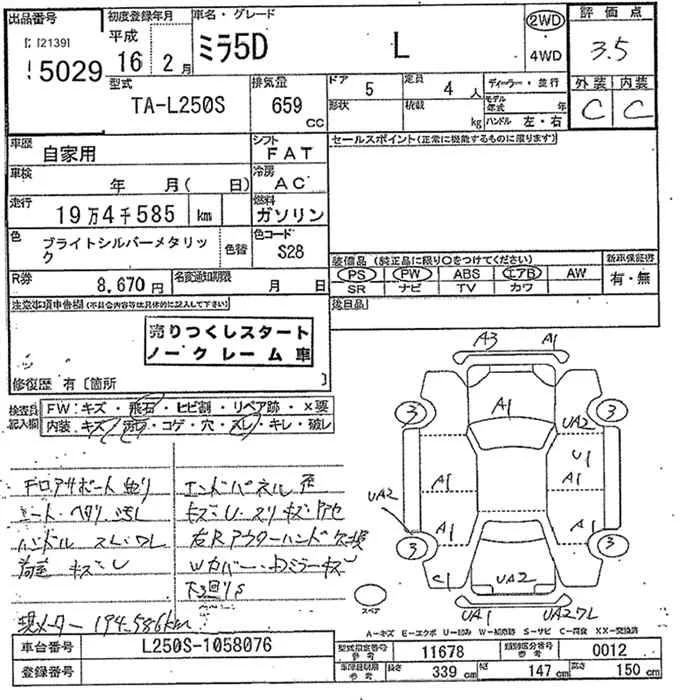 出品番号
[ [2139]
5029
初度登録年月
平成
16 2 月
車名・グレード
ミラ5D L
2WD
4WD
評価点
3.5
外装 内装
C C
型式
TA-L250S
排気量
659
CC
ドア 5
定員 4 人
形状
積載 kg
ディーラー・並行
モデル年式 年
ハンドル 左・右
車歴
自家用
シフト
FAT
セールスポイント(正常に機能するものに限ります)
車検
年 月( 日)
冷房
AC
走行
19万4千585 km
燃料
ガソリン
色
ブライトシルバーメタリック
色替
色コード
S28
装備品(純正品に限り○をつけてください)
PS PW ABS エアB AW
SR ナビ TV カワ
新車保証書
有・無
R券
8,670円
名変通知期限
月 日
注意事項申告欄(不具合内容等は具体的に記入して下さい)
売りつくしスタート
ノークレーム車
修復歴 有〔箇所 〕
検査員記入欄
FW:キズ・飛石・ヒビ割・リペア跡・×要
内装:キズ・汚れ・コゲ・穴・スレ・キレ・破レ
エンドパネル
ハンドル スレ
荷室 キズ U
現メーター 194,586km
A3 A1
A1
3 3
UA2
U1
A1 A1
UA2
A1 A1
3 3
C1 UA2
UA1
スペア
A-キズ E-エクボ U-凹み W-補修跡 S-サビ C-腐食 XX-交換済
車台番号
L250S-1058076
登録番号
型式指定番号 参考
11678
類別区分番号 参考
0012
長さ 339 cm
幅 147 cm
高さ 150 cm